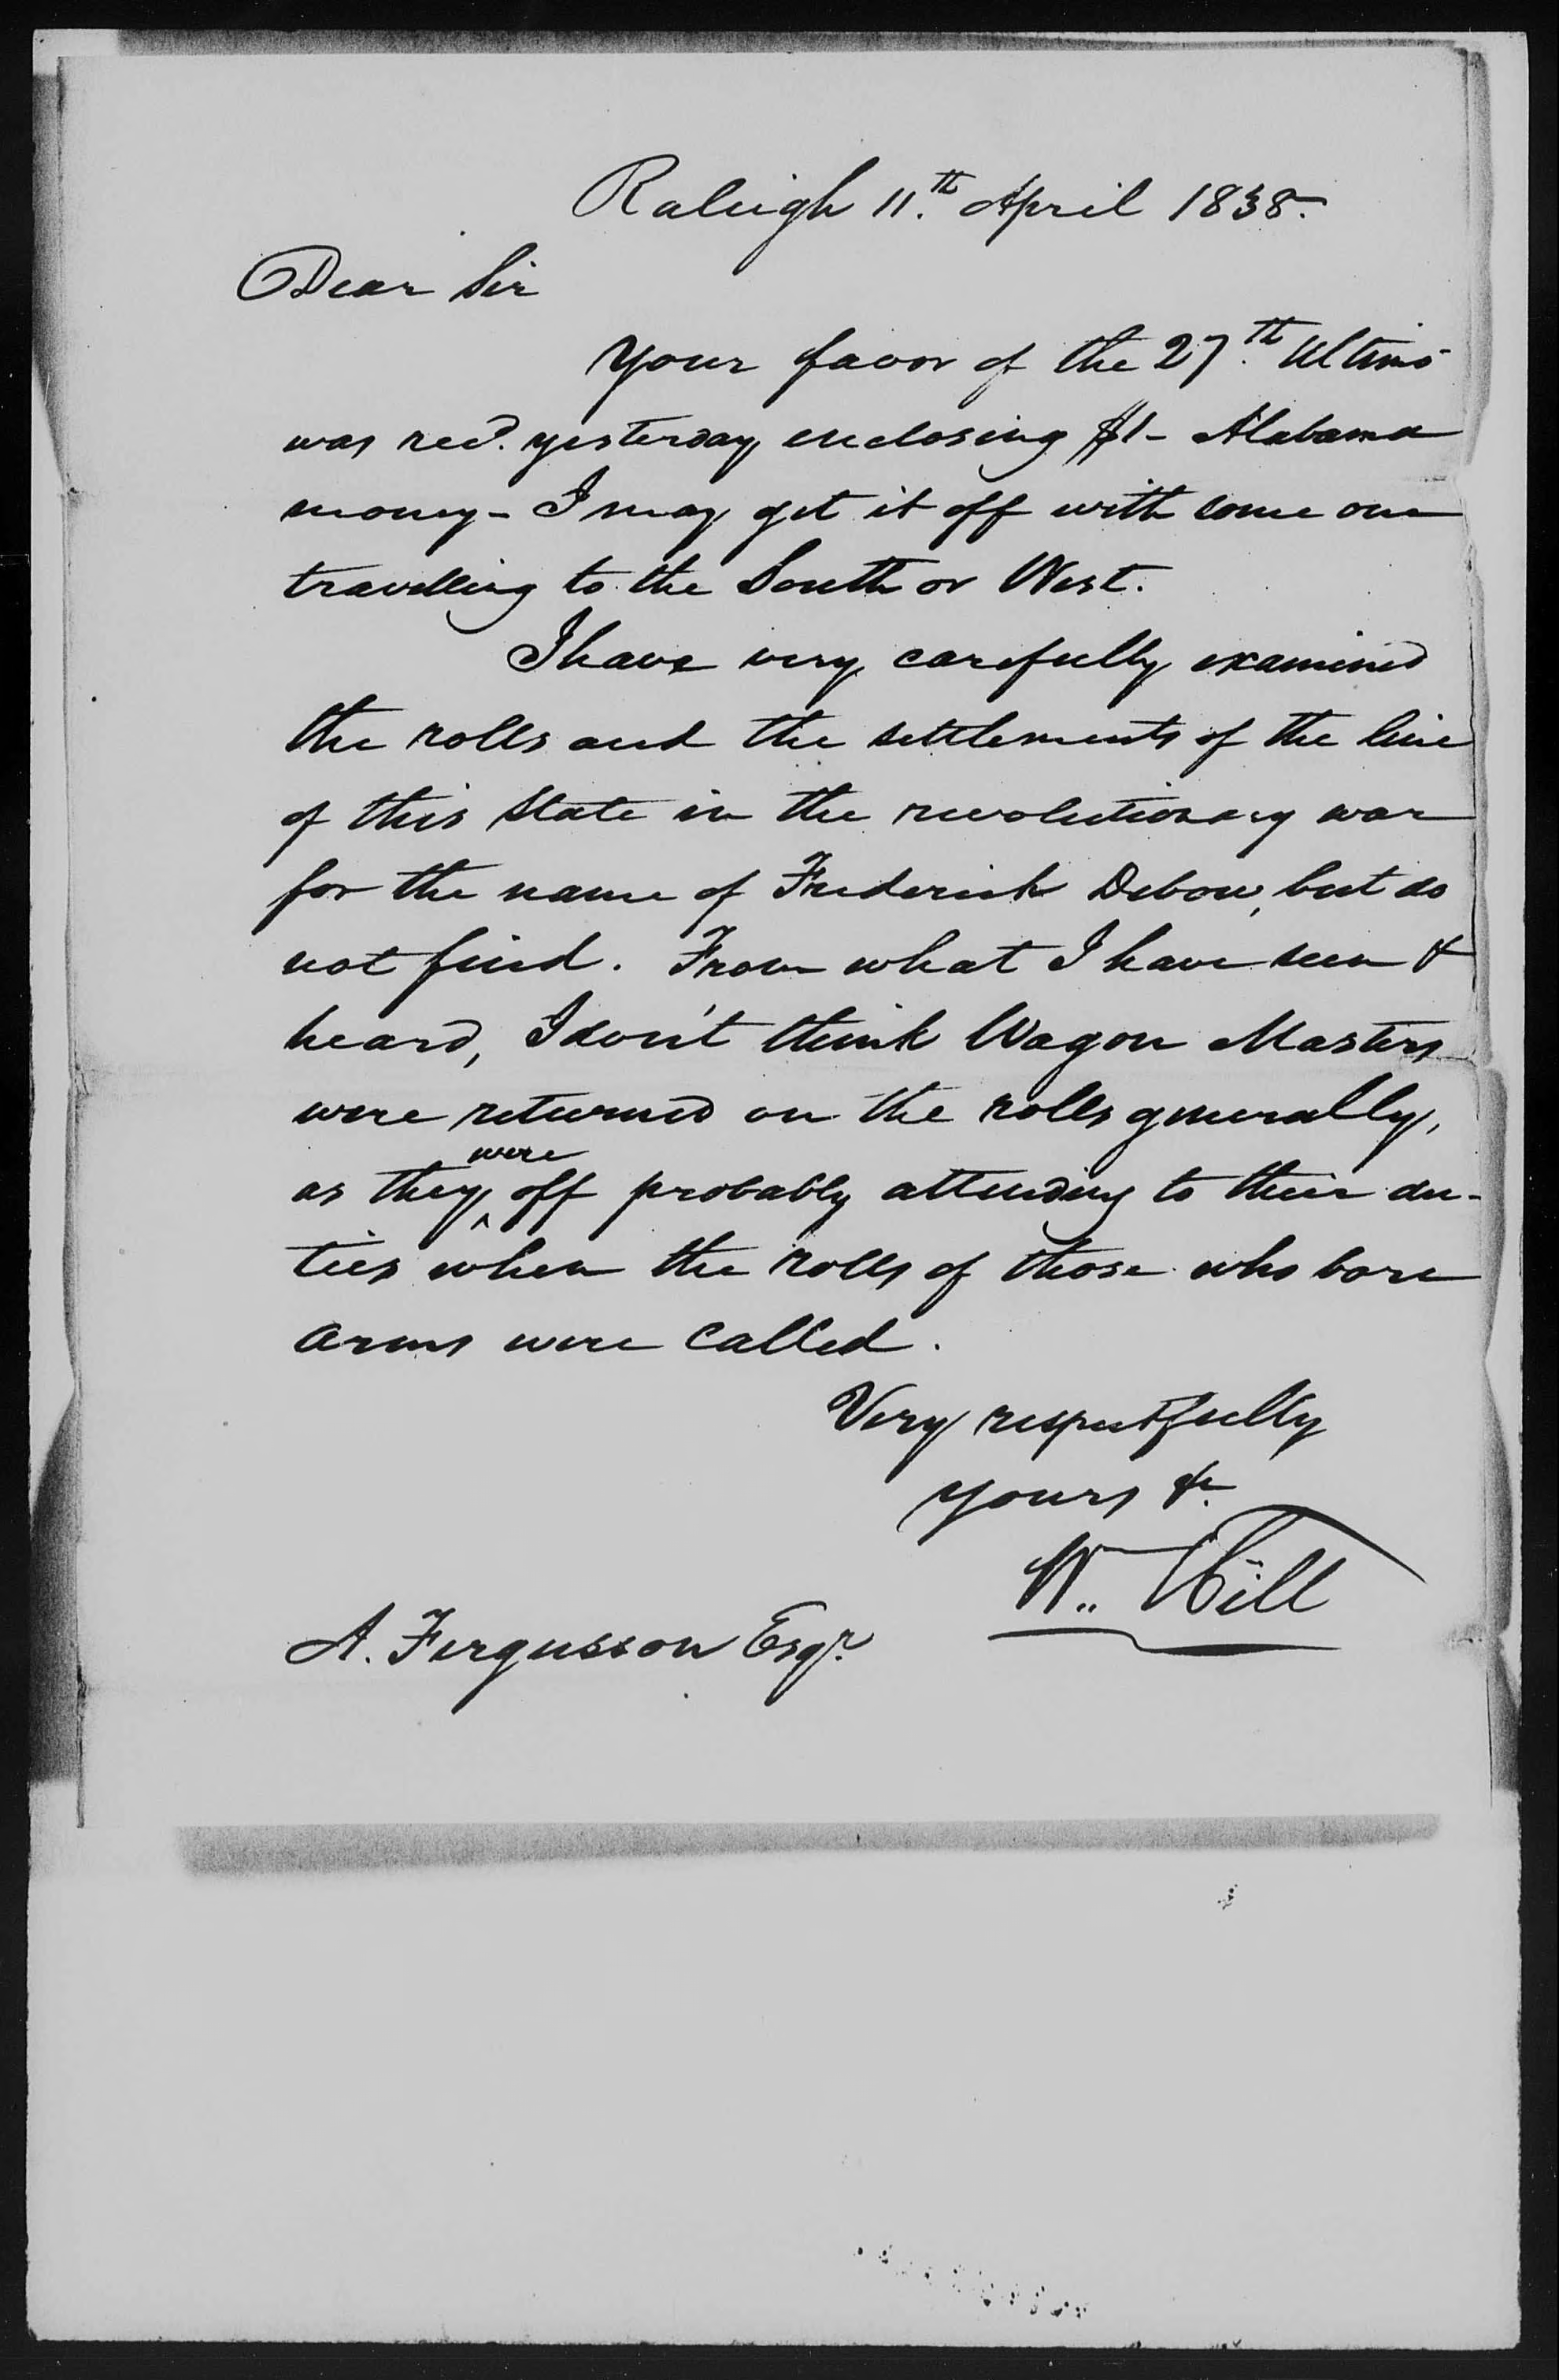 Raleigh 11.th April 1838.
Dear Sir
Your favor of the 27.th Ultimo
was recd. yesterday enclosing $1- Alabama
money - I may get it off with some one
travelling to the South or West.
I have very carefully examined
the rolls and the settlements of the line
of this State in the revolutionary war
for the name of Frederick Debow, but do
not find. From what I have seen &
heard, I don't think Wagon Masters
were returned on the rolls generally,
as they were off probably attending to their du-
ties when the rolls of those who bore
arms were called.
Very respectfully
yours &c.
Wm. Hill
A. Fergusson Esqr.